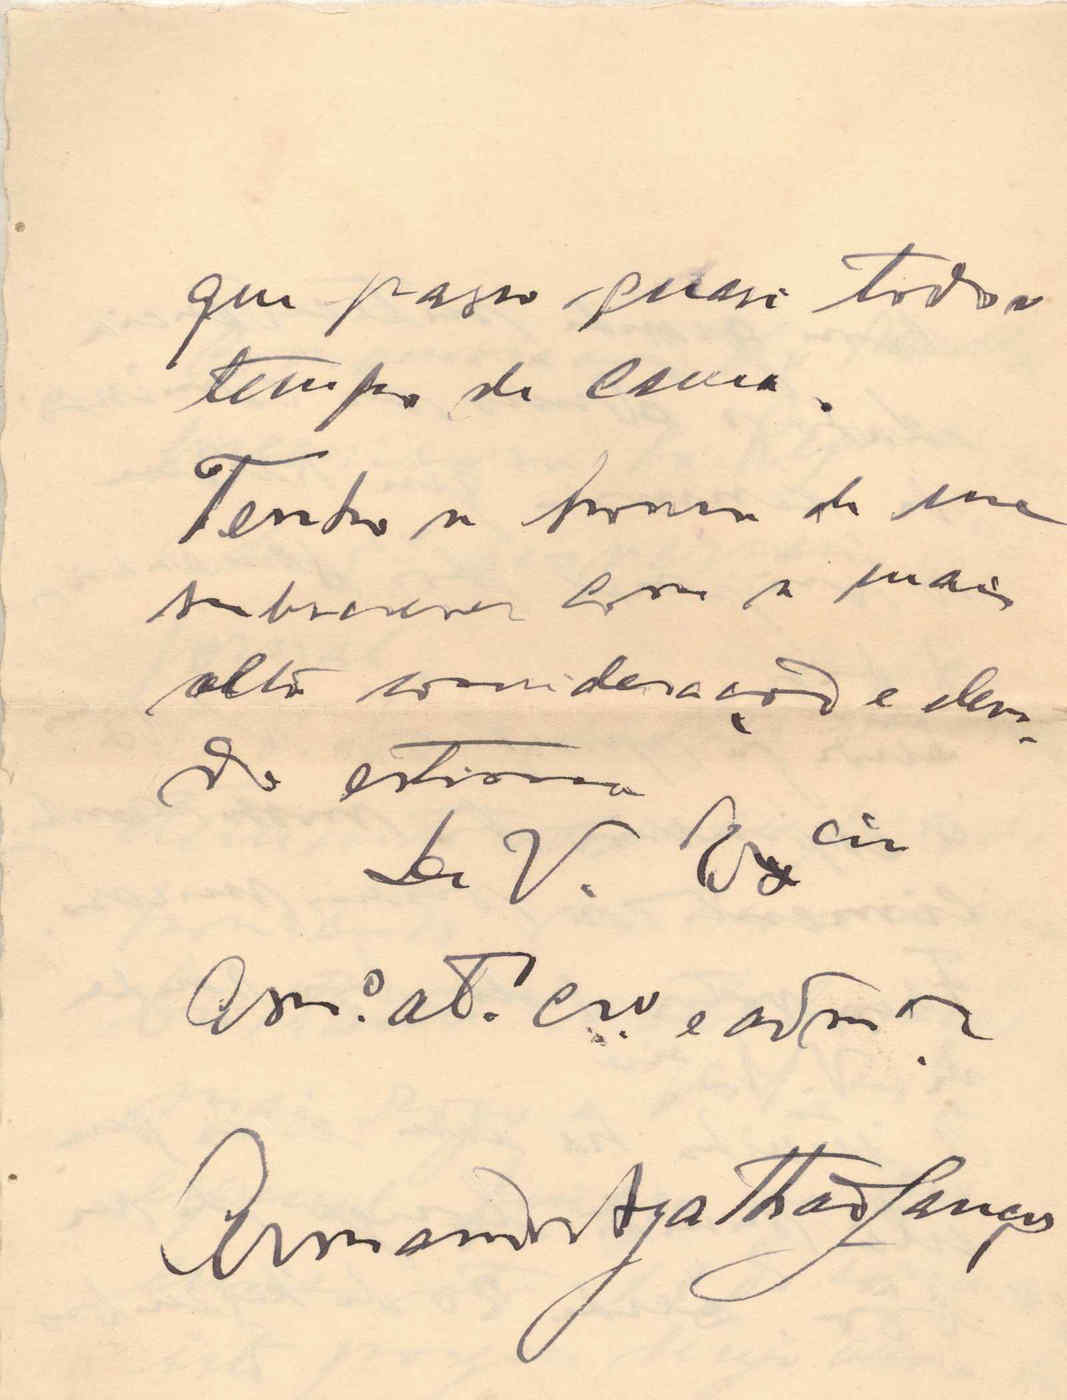 que passo quasi todo o
tempo de cama.
Tenho a honra de me
subscrever com a mais
alta consideração e eleva-
da estima
De V. Ex.cia
Am.º at.º cr.º e adm.or
Armando Agathão Lança